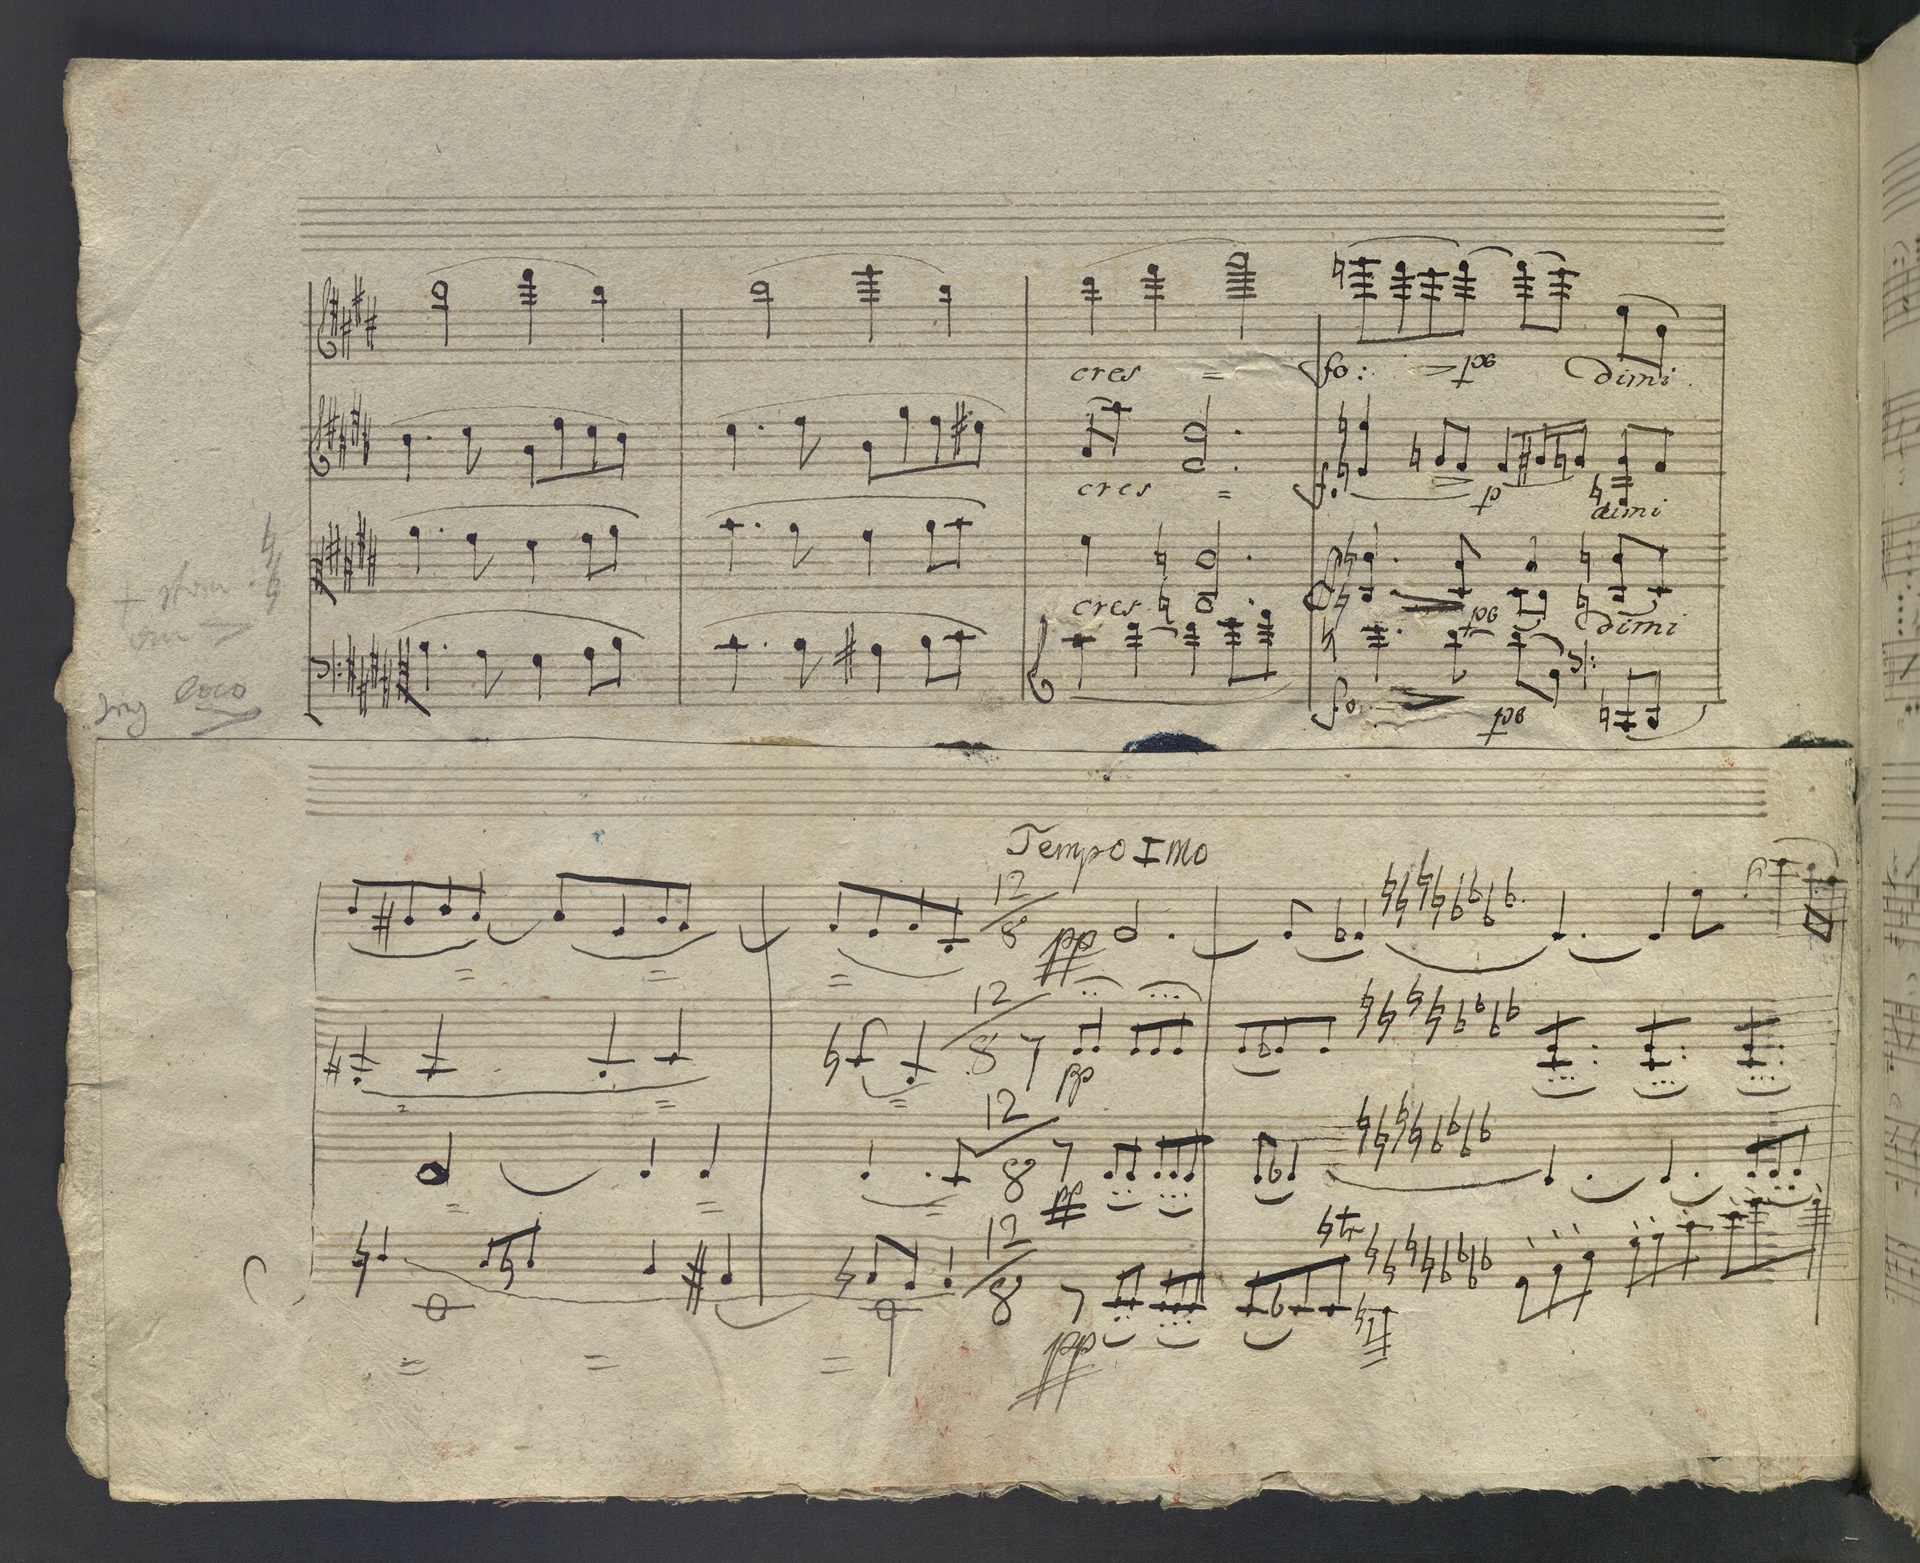 cres = fo: pᵒ dimi
cres = f. p dimi
cres pᵒ dimi
loco
fo pᵒ
Tempo Imo
12
8 pp
12
8 pp
12
8 pp
12
8 pp